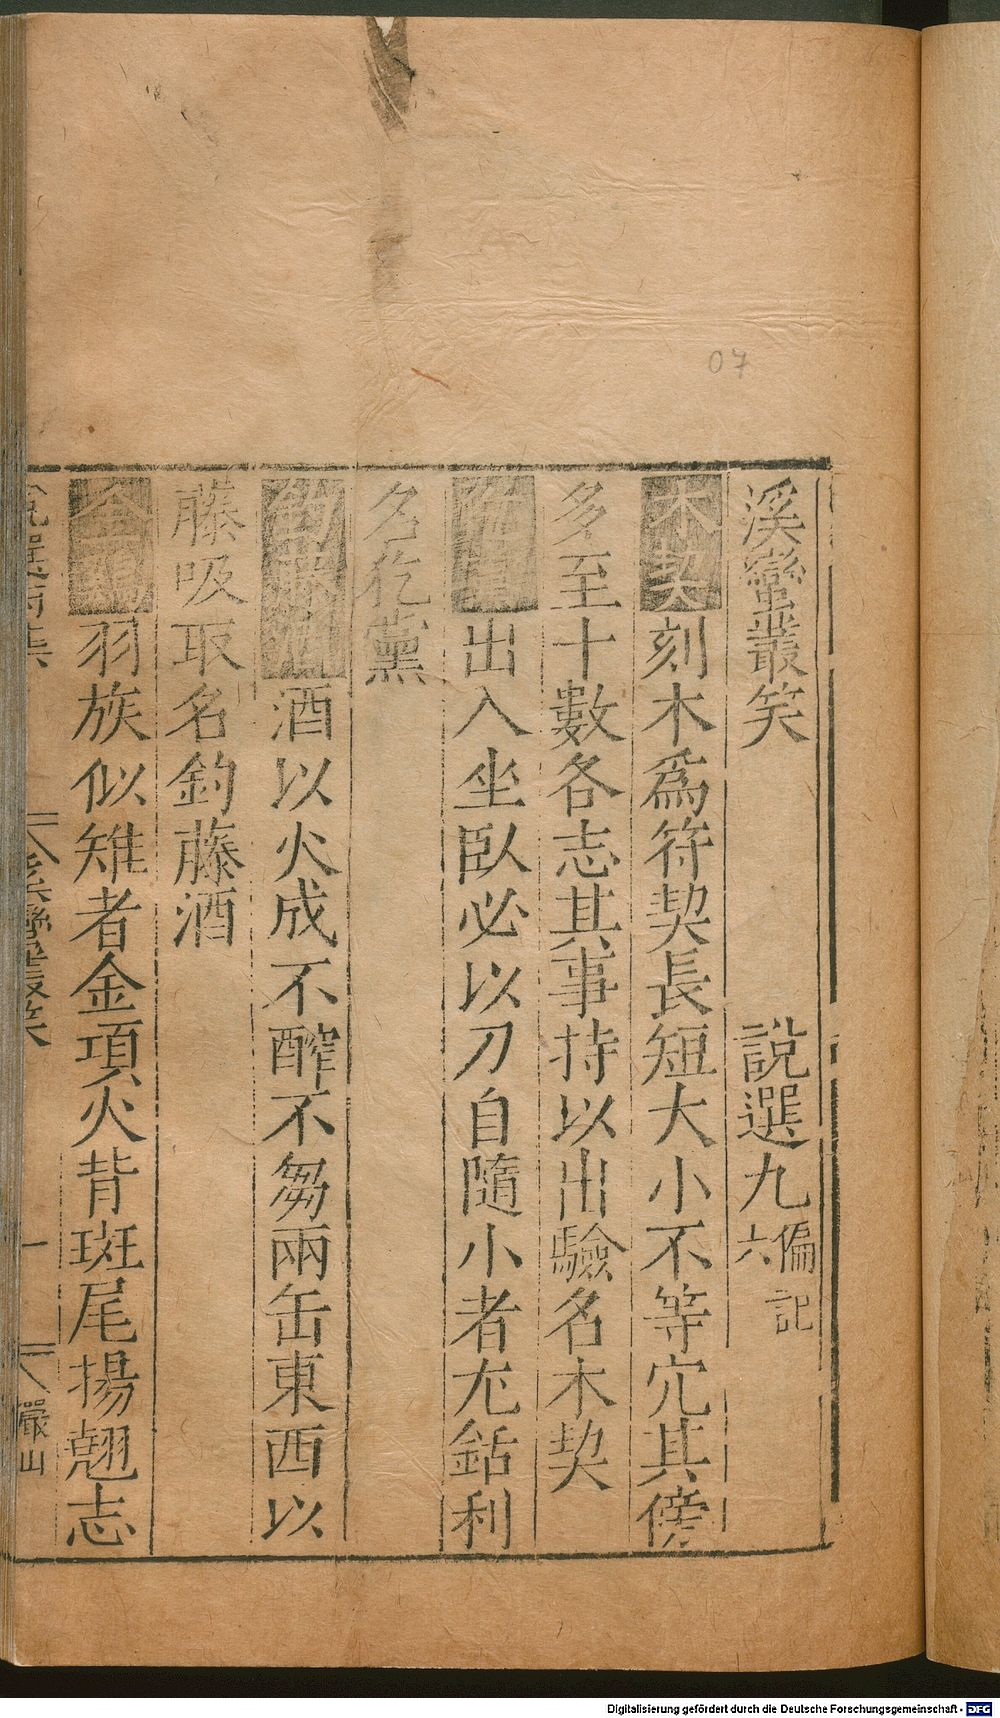 07
溪蠻叢笑 說選九 偏記六
木契刻木爲符契長短大小不等穴其傍
多至十數各志其事持以出驗名木契
仡黨出入坐臥必以刀自隨小者尤銛利
名仡黨
釣藤酒酒以火成不醡不芻兩缶東西以
藤吸取名釣藤酒
金雞羽族似雉者金項火背斑尾揚翹志
溪蠻叢笑
一
儼山
Digitalisierung gefördert durch die Deutsche Forschungsgemeinschaft - DFG